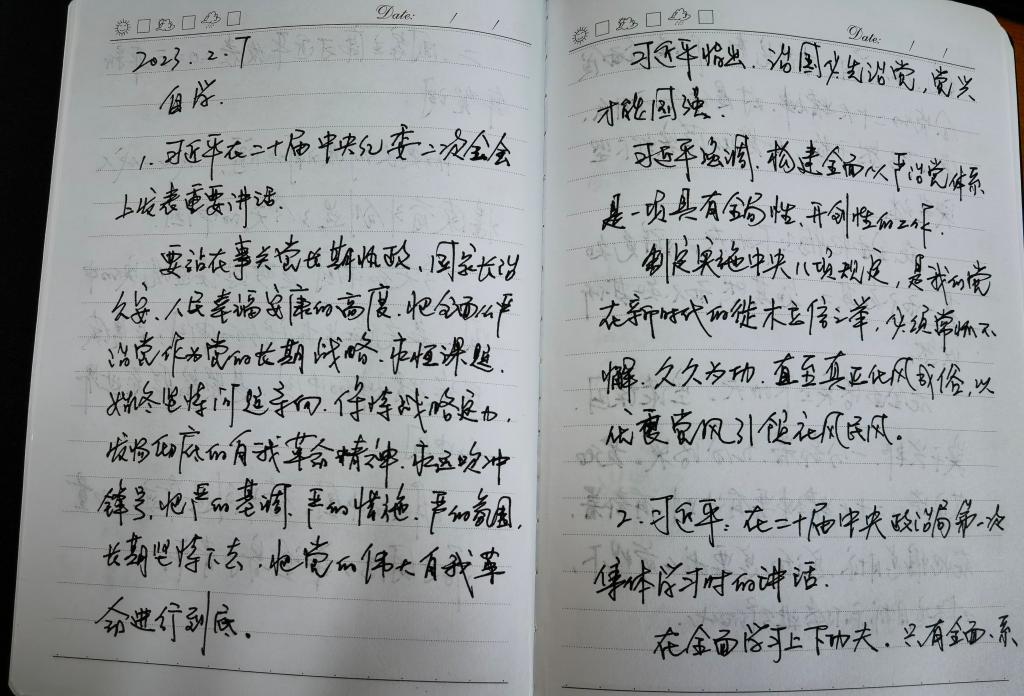 Date: / /
2023.2.7
自学.
1. 习近平在二十届中央纪委二次全会
上发表重要讲话.
要站在事关党长期执政、国家长治
久安、人民幸福安康的高度,把全面从严
治党作为党的长期战略、永恒课题.
始终坚持问题导向,保持战略定力,
发扬彻底的自我革命精神,永远吹冲
锋号,把严的基调、严的措施、严的氛围,
长期坚持下去,把党的伟大自我革
命进行到底。
Date: / /
习近平指出,治国必先治党,党兴
才能国强.
习近平强调,构建全面从严治党体系
是一项具有全局性、开创性的工作.
制定实施中央八项规定,是我们党
在新时代的徙木立信之举,必须常抓不
懈、久久为功,直至真正化风成俗,以
优良党风引领社风民风。
2. 习近平:在二十届中央政治局第一次
集体学习时的讲话.
在全面学习上下功夫.只有全面、系